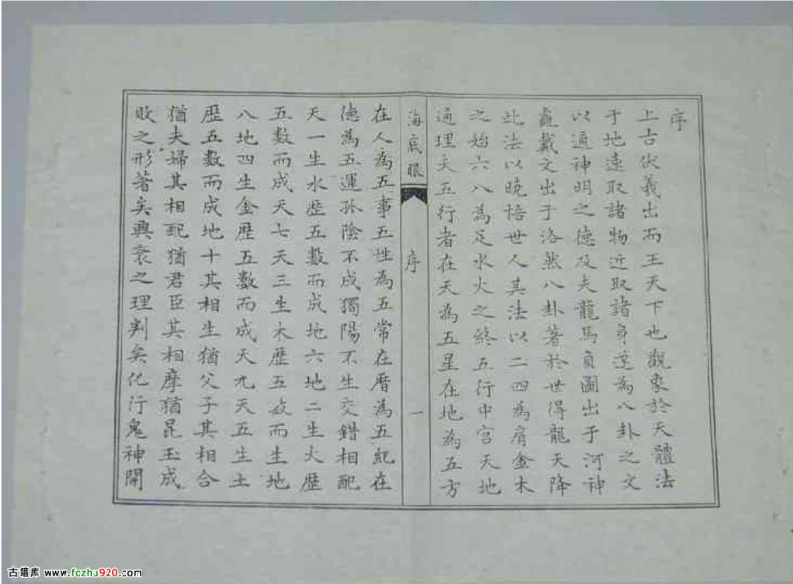 序
上古伏羲出而王天下也觀象於天體法
于地遠取諸物近取諸身遂為八卦之文
以通神明之德及夫龍馬負圖出于河神
龜戴文出于洛然八卦著於世得龍天降
此法以曉悟世人其法以二四為肩金木
之始六八為足水火之終五行中宮天地
通理夫五行者在天為五星在地為五方
海底眼
序
一
在人為五事五性為五常在曆為五紀在
德為五運孤陰不成獨陽不生交錯相配
天一生水歷五數而成地六地二生火歷
五數而成天七天三生木歷五數而生地
八地四生金歷五數而成天九天五生土
歷五數而成地十其相生猶父子其相合
猶夫婦其相配猶君臣其相摩猶昆玉成
敗之形著矣興衰之理判矣化行鬼神開
古籍库 www.fczhu920.com